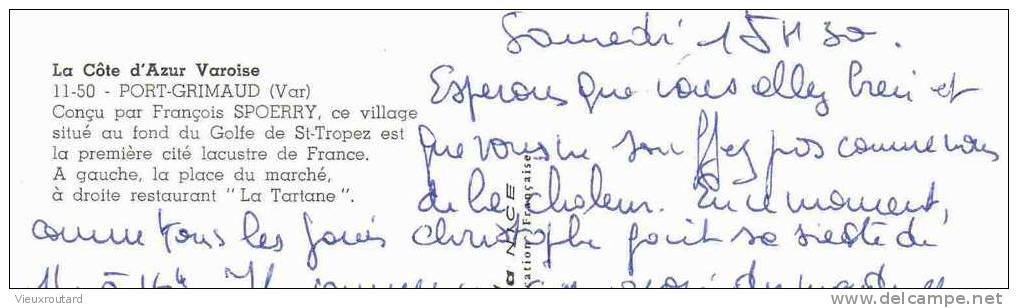 Samedi 15H30.
La Côte d'Azur Varoise
11-50 - PORT-GRIMAUD (Var)
Conçu par François SPOERRY, ce village
situé au fond du Golfe de St-Tropez est
la première cité lacustre de France.
A gauche, la place du marché,
à droite restaurant "La Tartane".
Esperons que vous allez bien et
que vous ne souffrez pas comme nous
de la chaleur. En ce moment,
comme tous les jours Christophe fait sa sieste de
NICE
Française
Vieuxroutard
delcampe.net